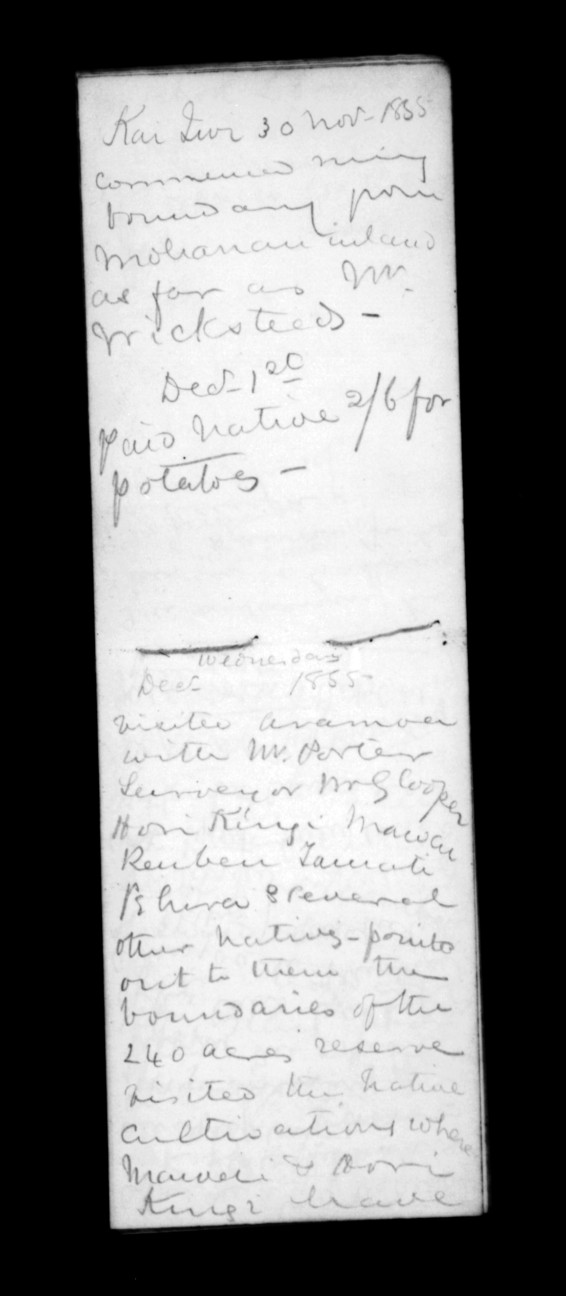 Kai Iwi 30 Nov- 1855
commenced
boundary from
Mohanau inland
as far as Mr.
Wicksteeds -
Dec- 1st
paid native 2/6 for
potatoes -
Wednesday
Dec- 1855-
visited Aramoa
with Mr. Porter
Surveyor Mr G Cooper
Hori Kingi Mawae
Reuben Tamati
& several
other natives - pointed
out to them the
boundaries of the
240 acres reserve
visited the native
cultivations where
Mawae & Hori
Kingi have